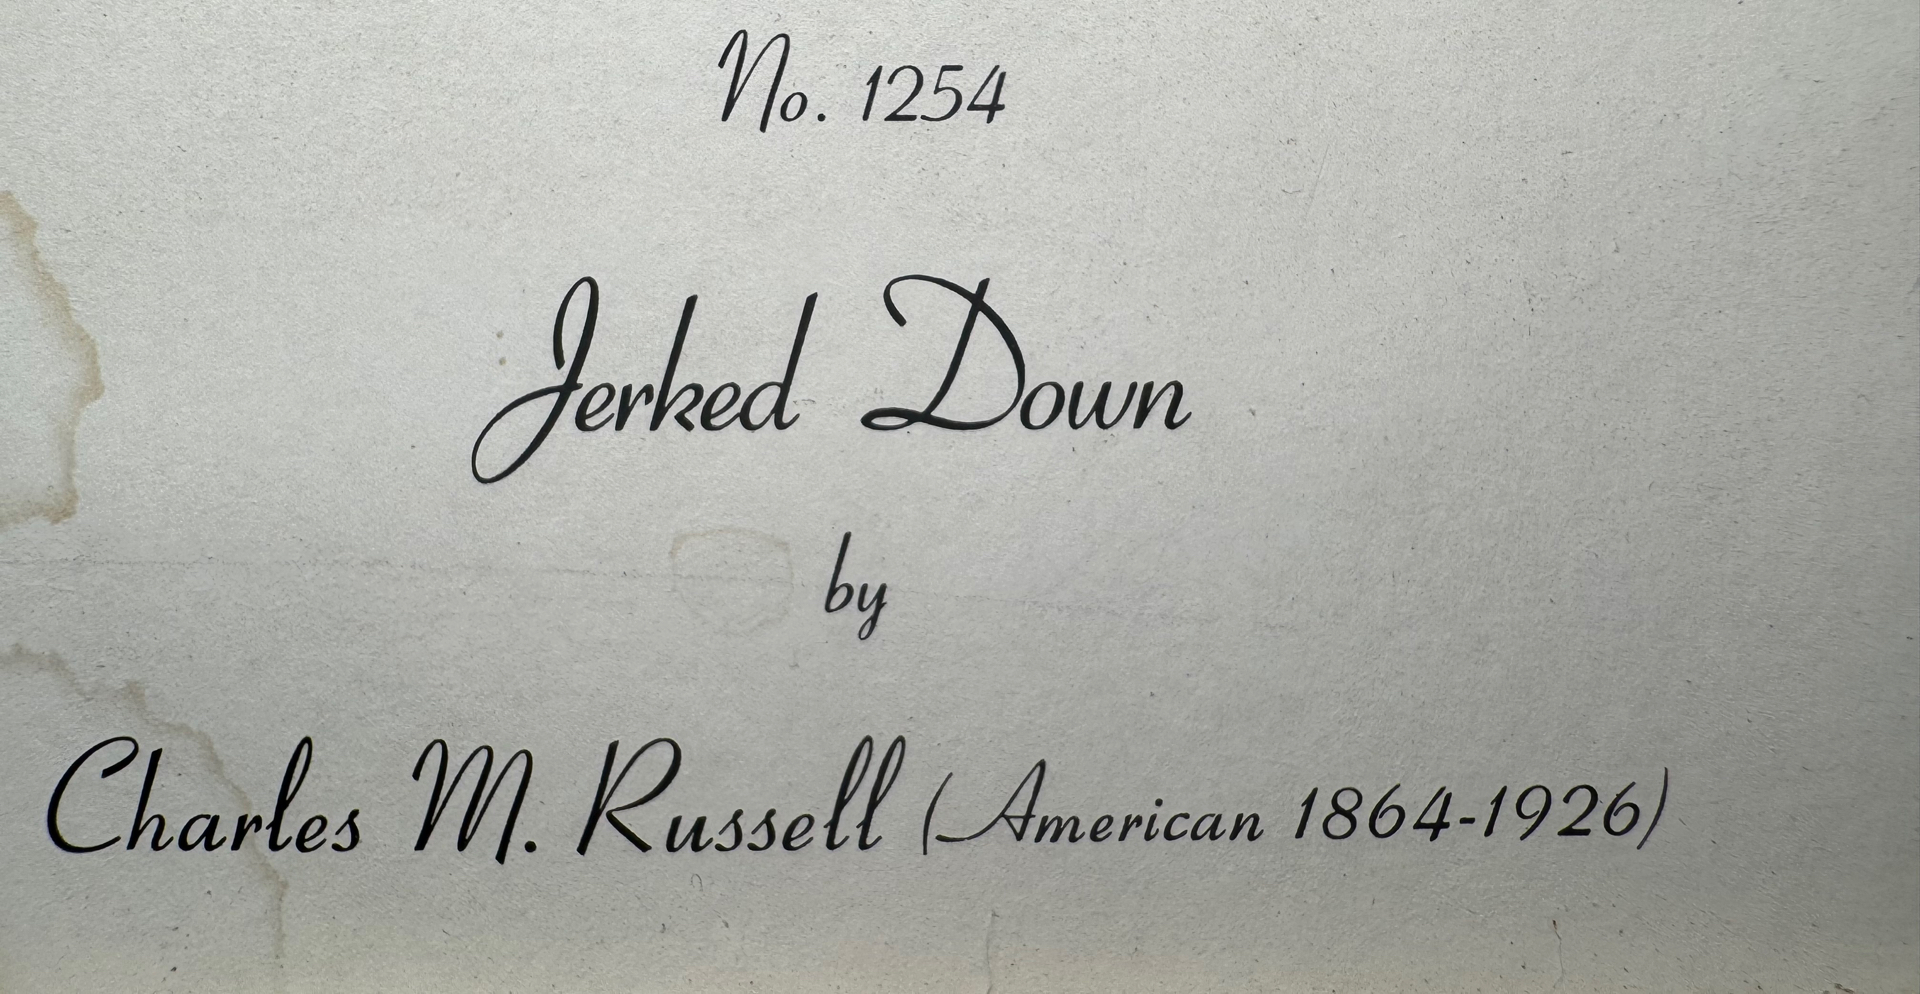 No. 1254
Jerked Down
by
Charles M. Russell (American 1864-1926)